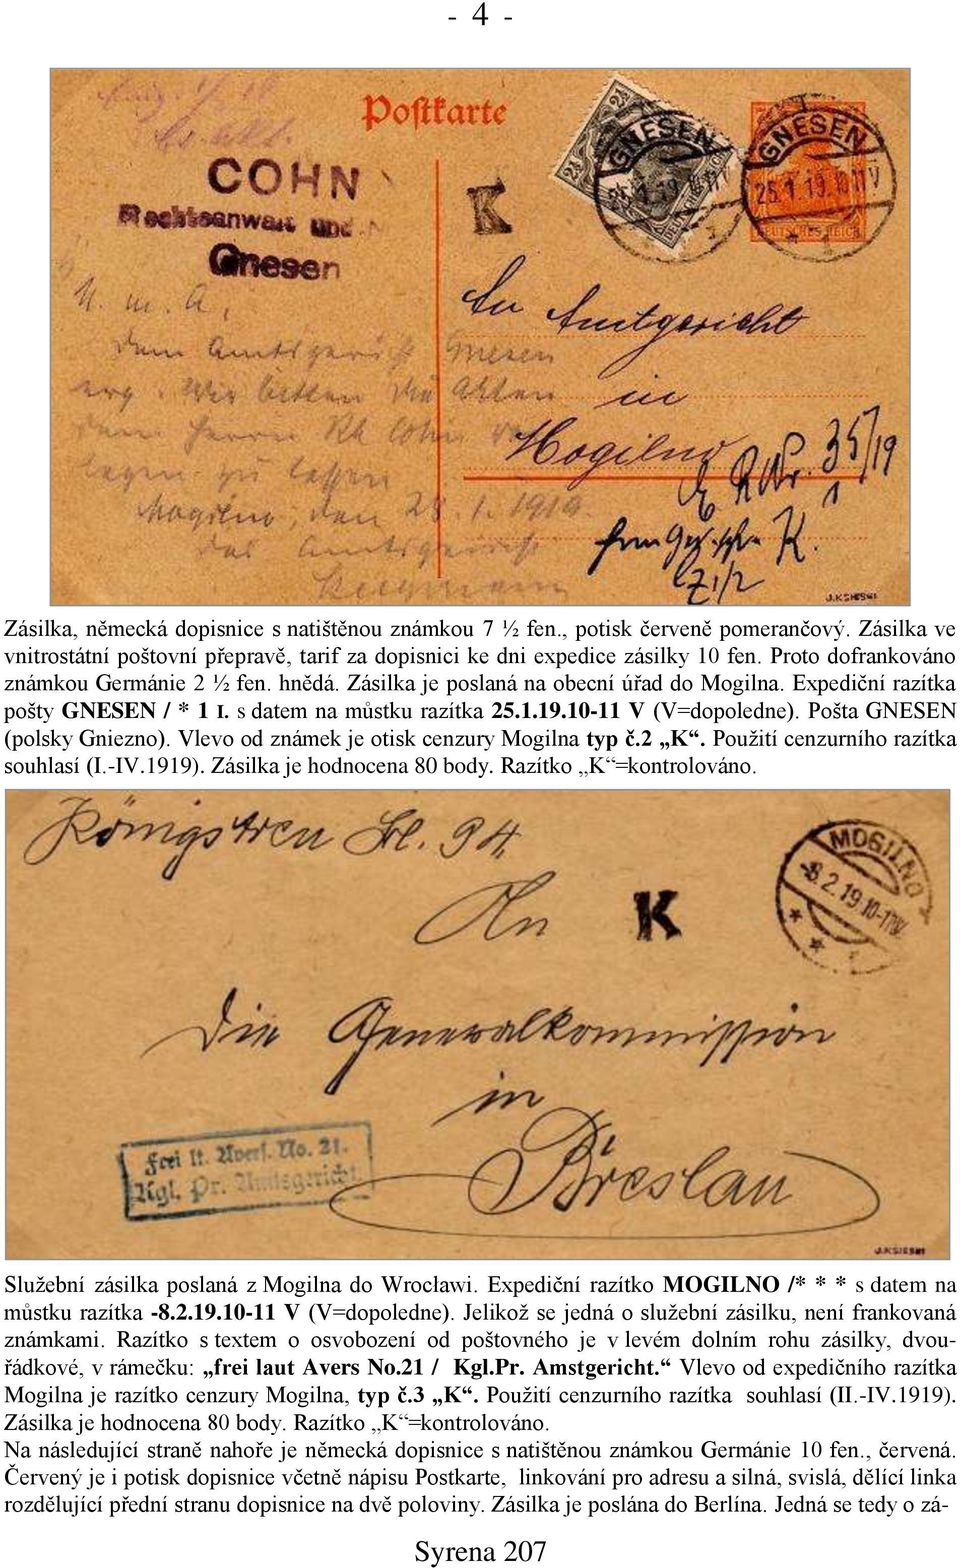 - 4 -
Postkarte
COHN
Rechtsanwalt und N
Gnesen
K
GNESEN
25.1.19.10-11V
GNESEN
25.1.19.10-11V
DEUTSCHES REICH
An Amtgericht
in
Mogilno
U. m. A,
dem Amtsgericht Gnesen
erg. Wir bitten die Akten
dem Herrn RA Cohn vor
legen zu lassen
Mogilno, den 28.1.1919.
das Amtsgericht
35/19
K.
J.KSIESKI
Zásilka, německá dopisnice s natištěnou známkou 7 ½ fen., potisk červeně pomerančový. Zásilka ve
vnitrostátní poštovní přepravě, tarif za dopisnici ke dni expedice zásilky 10 fen. Proto dofrankováno
známkou Germánie 2 ½ fen. hnědá. Zásilka je poslaná na obecní úřad do Mogilna. Expediční razítka
pošty GNESEN / * 1 I. s datem na můstku razítka 25.1.19.10-11 V (V=dopoledne). Pošta GNESEN
(polsky Gniezno). Vlevo od známek je otisk cenzury Mogilna typ č.2 „K“. Použití cenzurního razítka
souhlasí (I.-IV.1919). Zásilka je hodnocena 80 body. Razítko „K“=kontrolováno.
Königstren Fl. 94.
MOGILNO
-8.2.19.10-11V.
An
K
Die Generalkommission
in
Breslau
Frei lt. Avers. No. 21.
Kgl. Pr. Amtsgericht
J.KSIESKI
Služební zásilka poslaná z Mogilna do Wrocławi. Expediční razítko MOGILNO /* * * s datem na
můstku razítka -8.2.19.10-11 V (V=dopoledne). Jelikož se jedná o služební zásilku, není frankovaná
známkami. Razítko s textem o osvobození od poštovného je v levém dolním rohu zásilky, dvou-
řádkové, v rámečku: „frei laut Avers No.21 / Kgl.Pr. Amstgericht.“ Vlevo od expedičního razítka
Mogilna je razítko cenzury Mogilna, typ č.3 „K“. Použití cenzurního razítka souhlasí (II.-IV.1919).
Zásilka je hodnocena 80 body. Razítko „K“=kontrolováno.
Na následující straně nahoře je německá dopisnice s natištěnou známkou Germánie 10 fen., červená.
Červený je i potisk dopisnice včetně nápisu Postkarte, linkování pro adresu a silná, svislá, dělící linka
rozdělující přední stranu dopisnice na dvě poloviny. Zásilka je poslána do Berlína. Jedná se tedy o zá-
Syrena 207